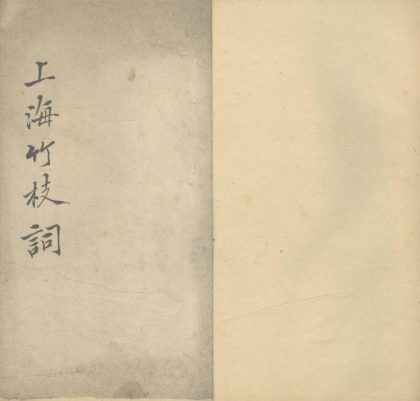 上海竹枝詞